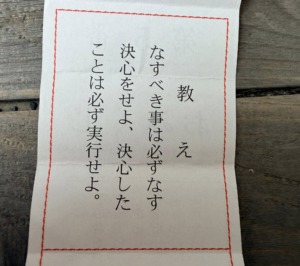 教え
なすべき事は必ずなす
決心をせよ、決心した
ことは必ず実行せよ。